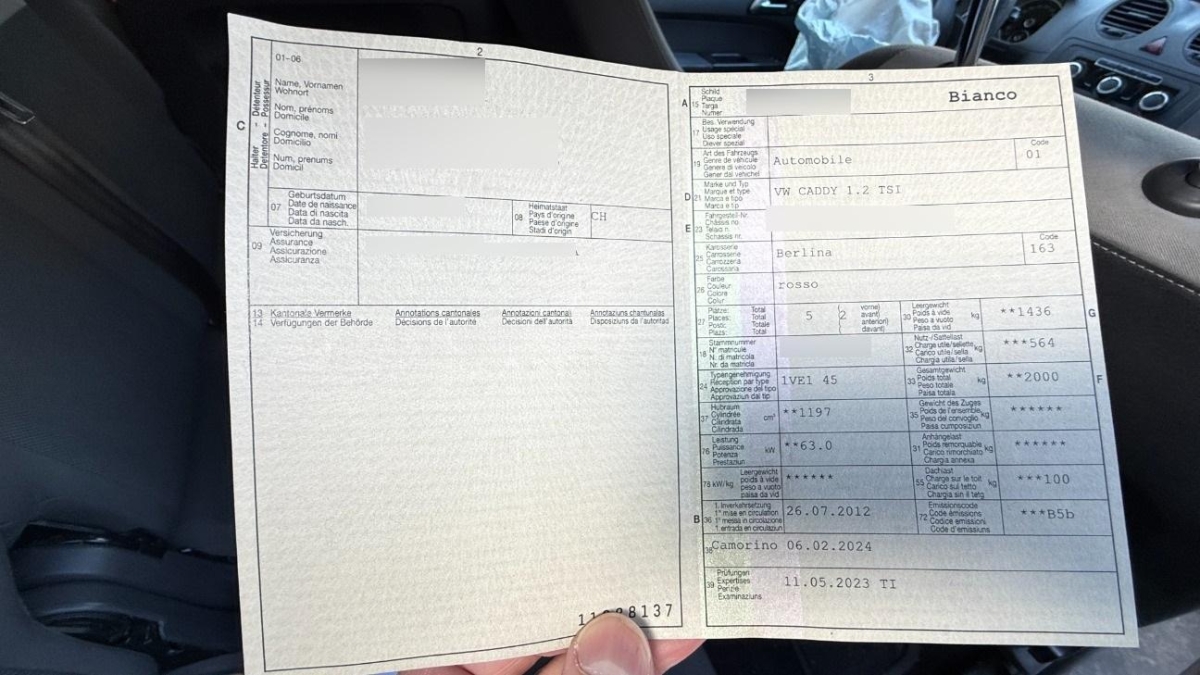 2
01-06
Halter - Detenteur
Detentore - Possessur
C
Name, Vornamen
Wohnort
Nom, prénoms
Domicile
Cognome, nomi
Domicilio
Num, prenums
Domicil
07
Geburtsdatum
Date de naissance
Data di nascita
Data da nasch.
08
Heimatstaat
Pays d'origine
Paese d'origine
Stadi d'origin
CH
09
Versicherung
Assurance
Assicurazione
Assicuranza
13 Kantonale Vermerke
14 Verfügungen der Behörde
Annotations cantonales
Décisions de l'autorité
Annotazioni cantonali
Decisioni dell'autorità
Annotaziuns chantunalas
Disposiziuns da l'autoritad
8137
3
A 15
Schild
Plaque
Targa
Numer
Bianco
17
Bes. Verwendung
Usage spécial
Uso speciale
Diever spezial
19
Art des Fahrzeugs
Genre de véhicule
Genere di veicolo
Gener dal vehichel
Automobile
Code
01
D 21
Marke und Typ
Marque et type
Marca e tipo
Marca e tip
VW CADDY 1.2 TSI
E 23
Fahrgestell-Nr.
Châssis no.
Telaio n.
Schassis nr.
25
Karosserie
Carrosserie
Carrozzeria
Carossaria
Berlina
Code
163
26
Farbe
Couleur
Colore
Colur
rosso
27
Plätze: Total
Places: Total
Posti: Totale
Plazs: Total
5
(2
vorne)
avant)
anteriori)
davant)
30
Leergewicht
Poids à vide
Peso a vuoto
Paisa da vid
kg
**1436
G
18
Stammnummer
N° matricule
N. di matricola
Nr. da matricla
32
Nutz-/Sattellast
Charge utile/sellette
Carico utile/sella
Chargia utila/sella
kg
***564
24
Typengenehmigung
Réception par type
Approvazione del tipo
Approvaziun dal tip
1VE1 45
33
Gesamtgewicht
Poids total
Peso totale
Paisa totala
kg
**2000
F
37
Hubraum
Cylindrée
Cilindrata
Cilindrada
cm³
**1197
35
Gewicht des Zuges
Poids de l'ensemble
Peso del convoglio
Paisa cumposiziun
kg
******
76
Leistung
Puissance
Potenza
Prestaziun
kW
**63.0
31
Anhängelast
Poids remorquable
Carico rimorchiato
Chargia annexa
kg
******
78 kW/kg
Leergewicht
poids à vide
peso a vuoto
paisa da vid
******
55
Dachlast
Charge sur le toit
Carico sul tetto
Chargia sin il tetg
kg
***100
B 36
1. Inverkehrsetzung
1re mise en circulation
1a messa in circolazione
1. entrada en circulaziun
26.07.2012
72
Emissionscode
Code émissions
Codice emissioni
Code d'emissiuns
***B5b
38
Camorino 06.02.2024
39
Prüfungen
Expertises
Perizie
Examinaziuns
11.05.2023 TI